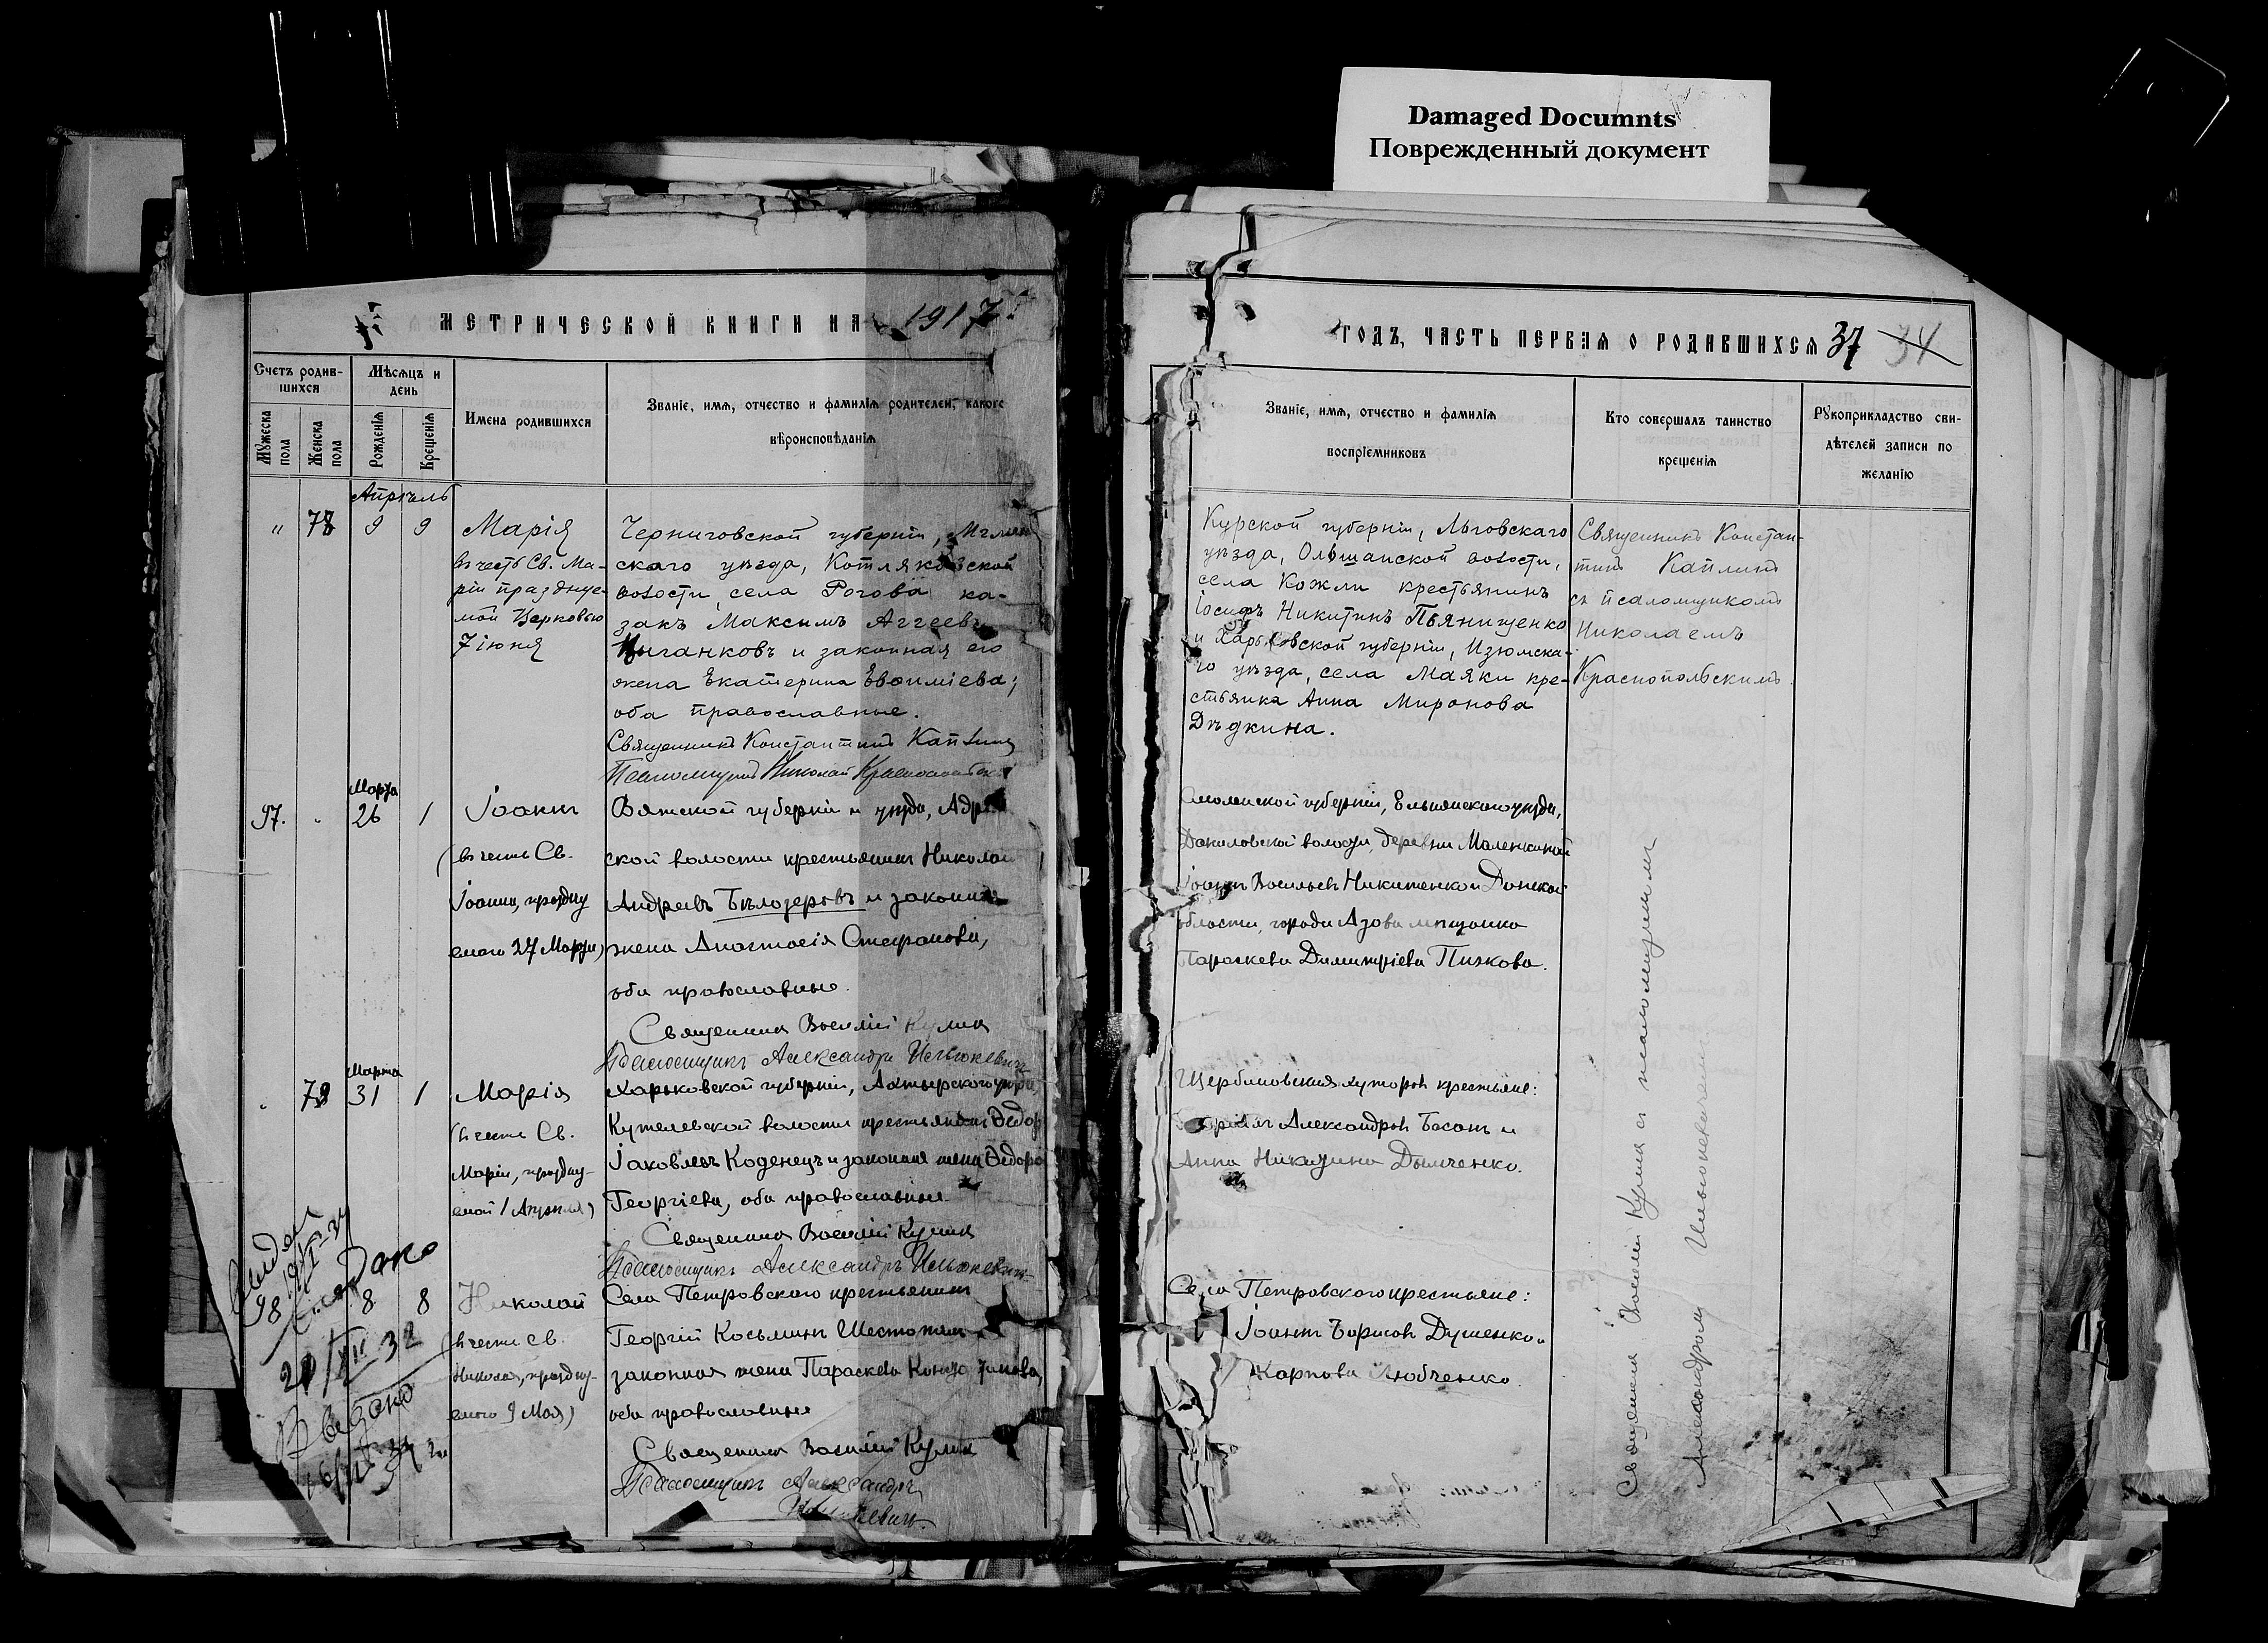 Damaged Documnts
Поврежденный документ
МЕТРИЧЕСКОЙ КНИГИ НА 1917
Счетъ родив-
шихся
Мѣсяцъ и
день
Имена родившихся
Званіе, имя, отчество и фамилія родителей, какого
вѣроисповѣданія
Мужеска
пола
Женска
пола
Рожденія
Крещенія
Апрѣль
" 78 9 9 Марія
въ честь Св. Ма-
ріи празднуе-
мой Церковью
7 іюня
Черниговской губерніи, Мглин
скаго уѣзда, Котляковской
волости, села Рогова ка-
закъ Максимъ Аггеевъ
Цыганковъ и законная его
жена Екатерина Евѳиміева;
оба православные.
Священникъ Константинъ Каплинъ
Псаломщикъ Николай Краснопольскій
Марта
97. " 26 1 Іоаннъ
(въ честь Св.
Іоанна, праздну
емаго 27 Марта)
Вятской губерніи и уѣзда,
ской волости крестьянинъ Николай
Андреевъ Бѣлозеровъ и законная
жена Анастасія Стефанова,
оба православные.
Священникъ Василій Кулика
Псаломщикъ Александръ Ильюкевичъ
Марта
79 31 1 Марія
(въ честь Св.
Маріи, праздну-
емой 1 Апрѣля)
Харьковской губерніи, Ахтырскаго уѣзда,
Котелевской волости крестьянинъ Ѳедоръ
Іаковлевъ Коденецъ и законная жена Ѳедора
Георгіева, оба православные.
Священникъ Василій Кулика
Псаломщикъ Александръ Ильюкевичъ
98 8 8 Николай
(въ честь Св.
Николая, праздну-
емаго 9 Мая)
Села Петровскаго крестьянинъ
Георгій Косьминъ
законная жена Параскева
оба православные
Священникъ Василій Кулика
Псаломщикъ Александръ
Ильюкевичъ.
Выдано
ГОДЪ, ЧАСТЬ ПЕРВАЯ О РОДИВШИХСЯ 37 34
Званіе, имя, отчество и фамилія
воспріемниковъ
Кто совершалъ таинство
крещенія
Рукоприкладство сви-
дѣтелей записи по
желанію
Курской губерніи, Льговскаго
уѣзда, Ольшанской волости,
села Кожли крестьянинъ
Іосифъ Никитинъ Пьянищенко
и Харьковской губерніи, Изюмска-
го уѣзда, села Маяки кре-
стьянка Анна Миронова
Дѣдкина.
Священникъ Констан-
тинъ Каплинъ
съ псаломщикомъ
Николаемъ
Краснопольскимъ.
Смоленской губерніи, Ельнинскаго уѣзда,
волости, деревни
Іоаннъ Васильевъ Никитенко и Донской
области, города Азова мѣщанка
Параскева Димитріева Пижкова.
Щербиновскихъ хуторовъ крестьяне:
Александровъ Басанъ и
Анна Никитина Дымченко.
Села Петровскаго крестьяне:
Іоаннъ Борисовъ Душенко и
Карпова Любченко.
Священникъ Василій Кулика съ псаломщикомъ
Александромъ Ильюкевичемъ